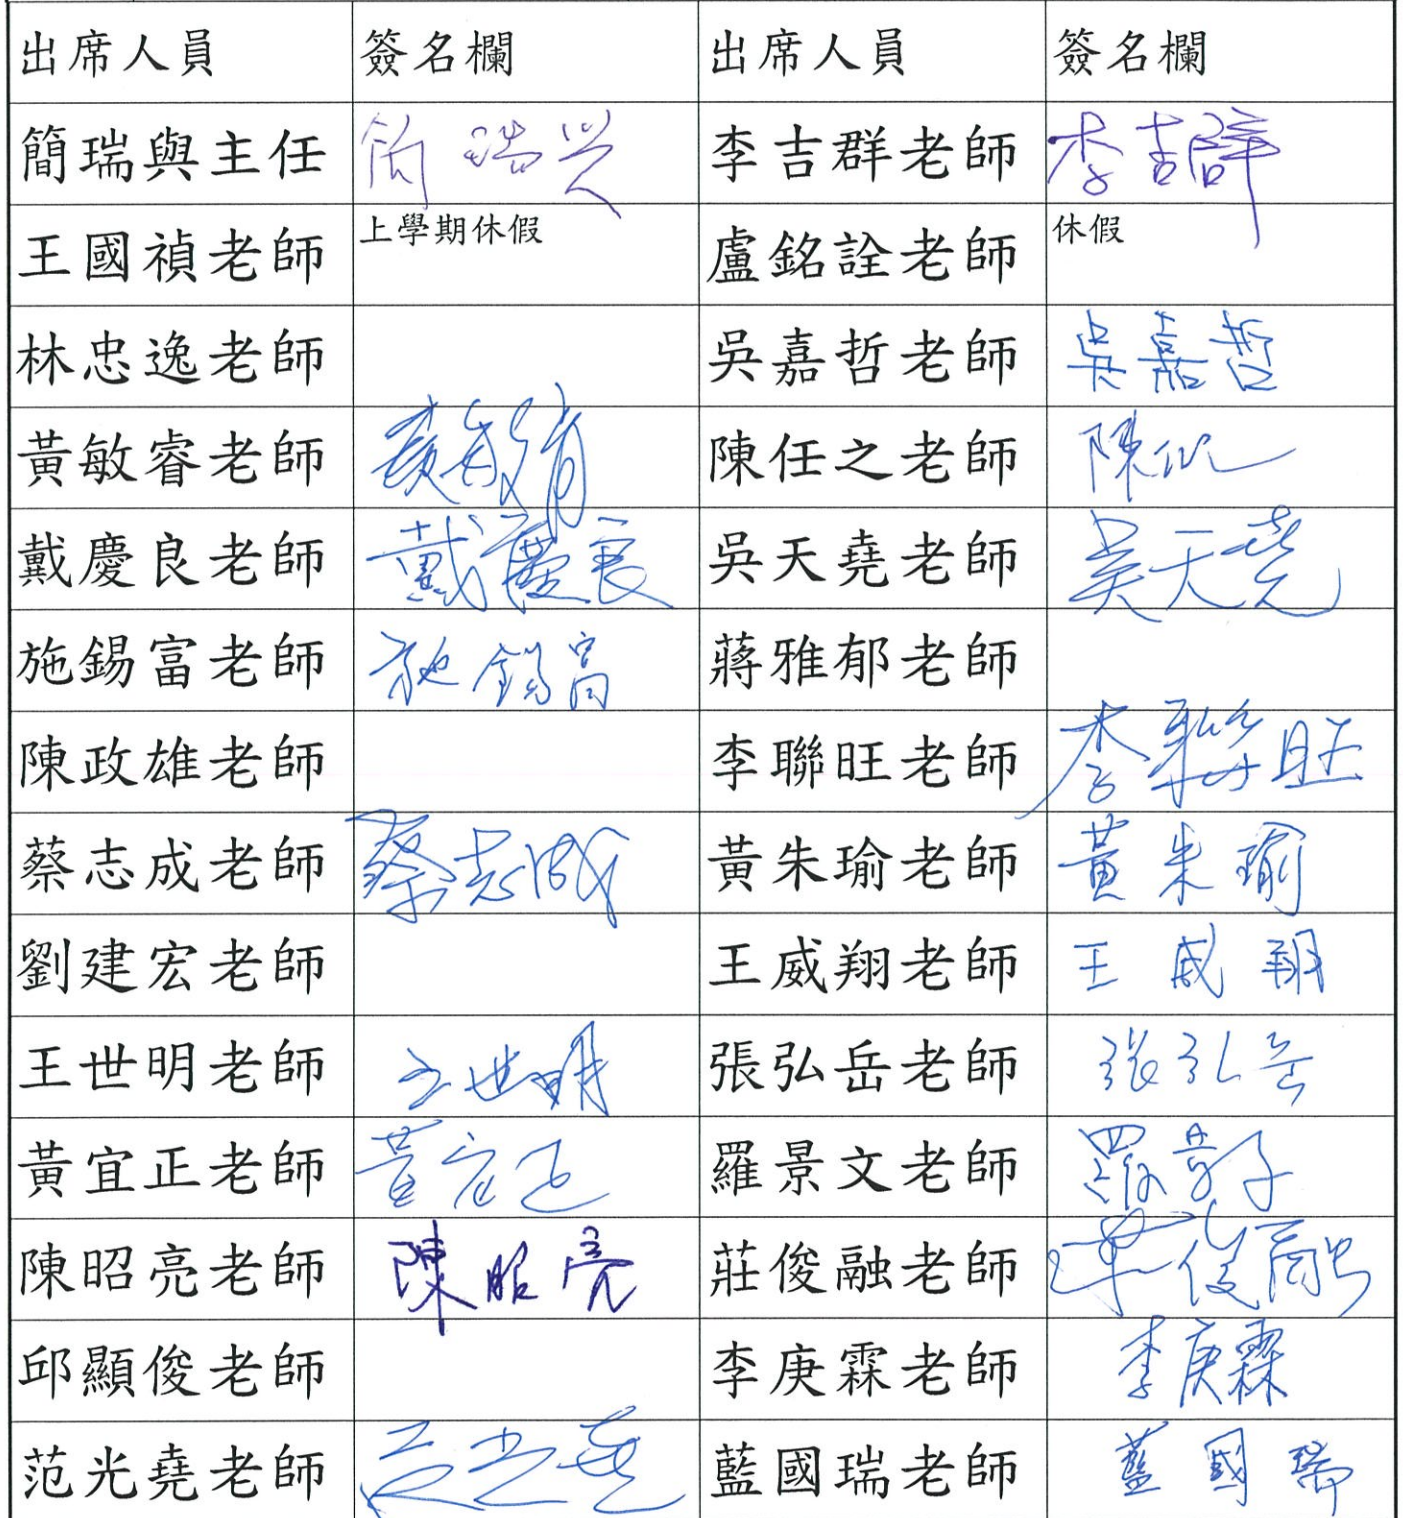 出席人員 簽名欄 出席人員 簽名欄
簡瑞與主任 簡瑞與 李吉群老師 李吉群
王國禎老師 上學期休假 盧銘詮老師 休假
林忠逸老師 吳嘉哲老師 吳嘉哲
黃敏睿老師 黃敏睿 陳任之老師 陳任之
戴慶良老師 戴慶良 吳天堯老師 吳天堯
施錫富老師 施錫富 蔣雅郁老師
陳政雄老師 李聯旺老師 李聯旺
蔡志成老師 蔡志成 黃朱瑜老師 黃朱瑜
劉建宏老師 王威翔老師 王威翔
王世明老師 王世明 張弘岳老師 張弘岳
黃宜正老師 黃宜正 羅景文老師 羅景文
陳昭亮老師 陳昭亮 莊俊融老師 莊俊融
邱顯俊老師 李庚霖老師 李庚霖
范光堯老師 范光堯 藍國瑞老師 藍國瑞